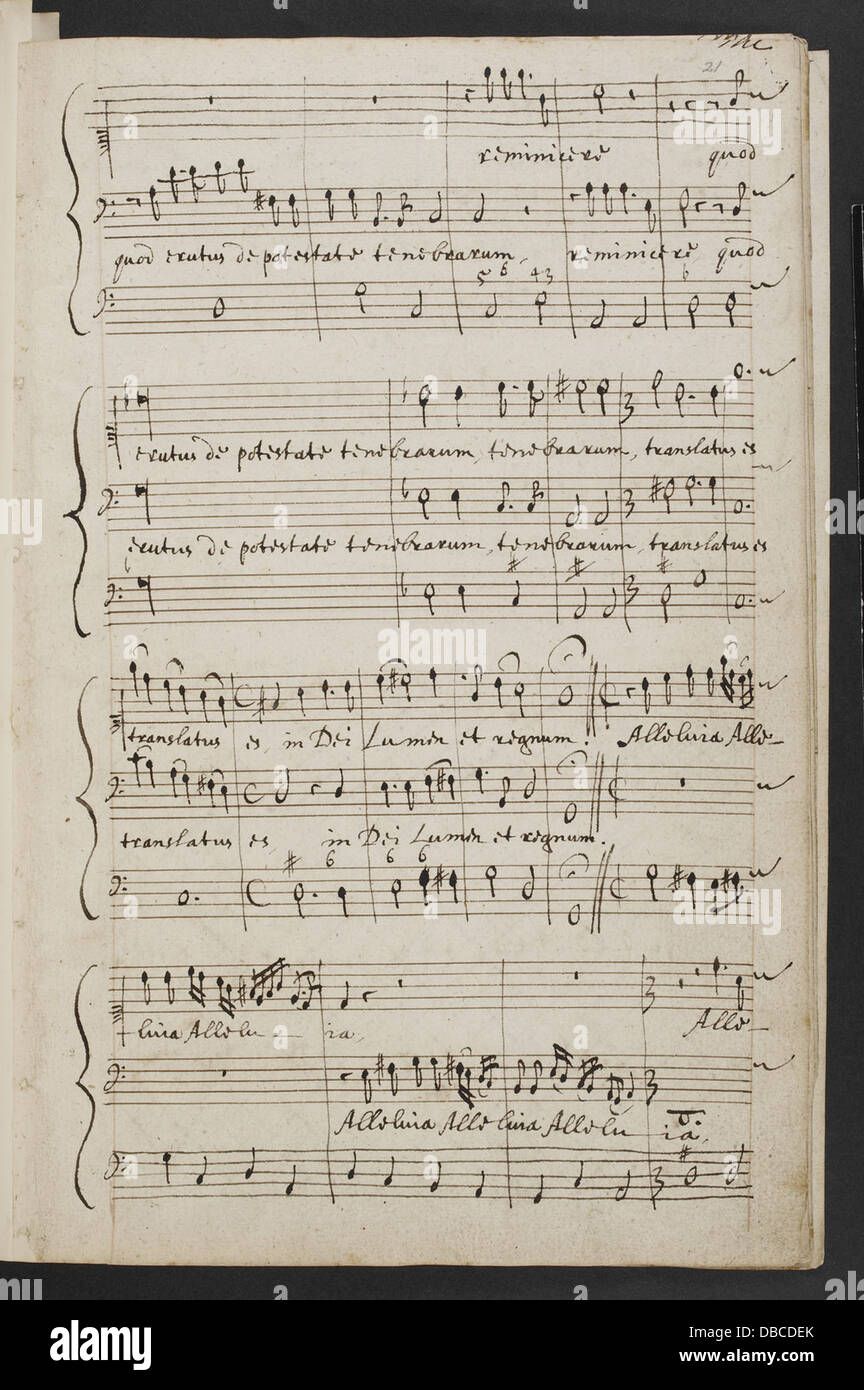 21
reminicere quod
quod erutus de potestate tenebrarum, reminicere quod
5 6 43 6
erutus de potestate tenebrarum, tenebrarum, translatus es
erutus de potestate tenebrarum, tenebrarum, translatus es
6
translatus es, in Dei Lumen et regnum. Alleluia Alle-
translatus es, in Dei Lumen et regnum.
6 6 6
-luia Allelu - ia, Alle-
Alleluia Alleluia Allelu - ia,
alamy
Image ID: DBCDEK
www.alamy.com